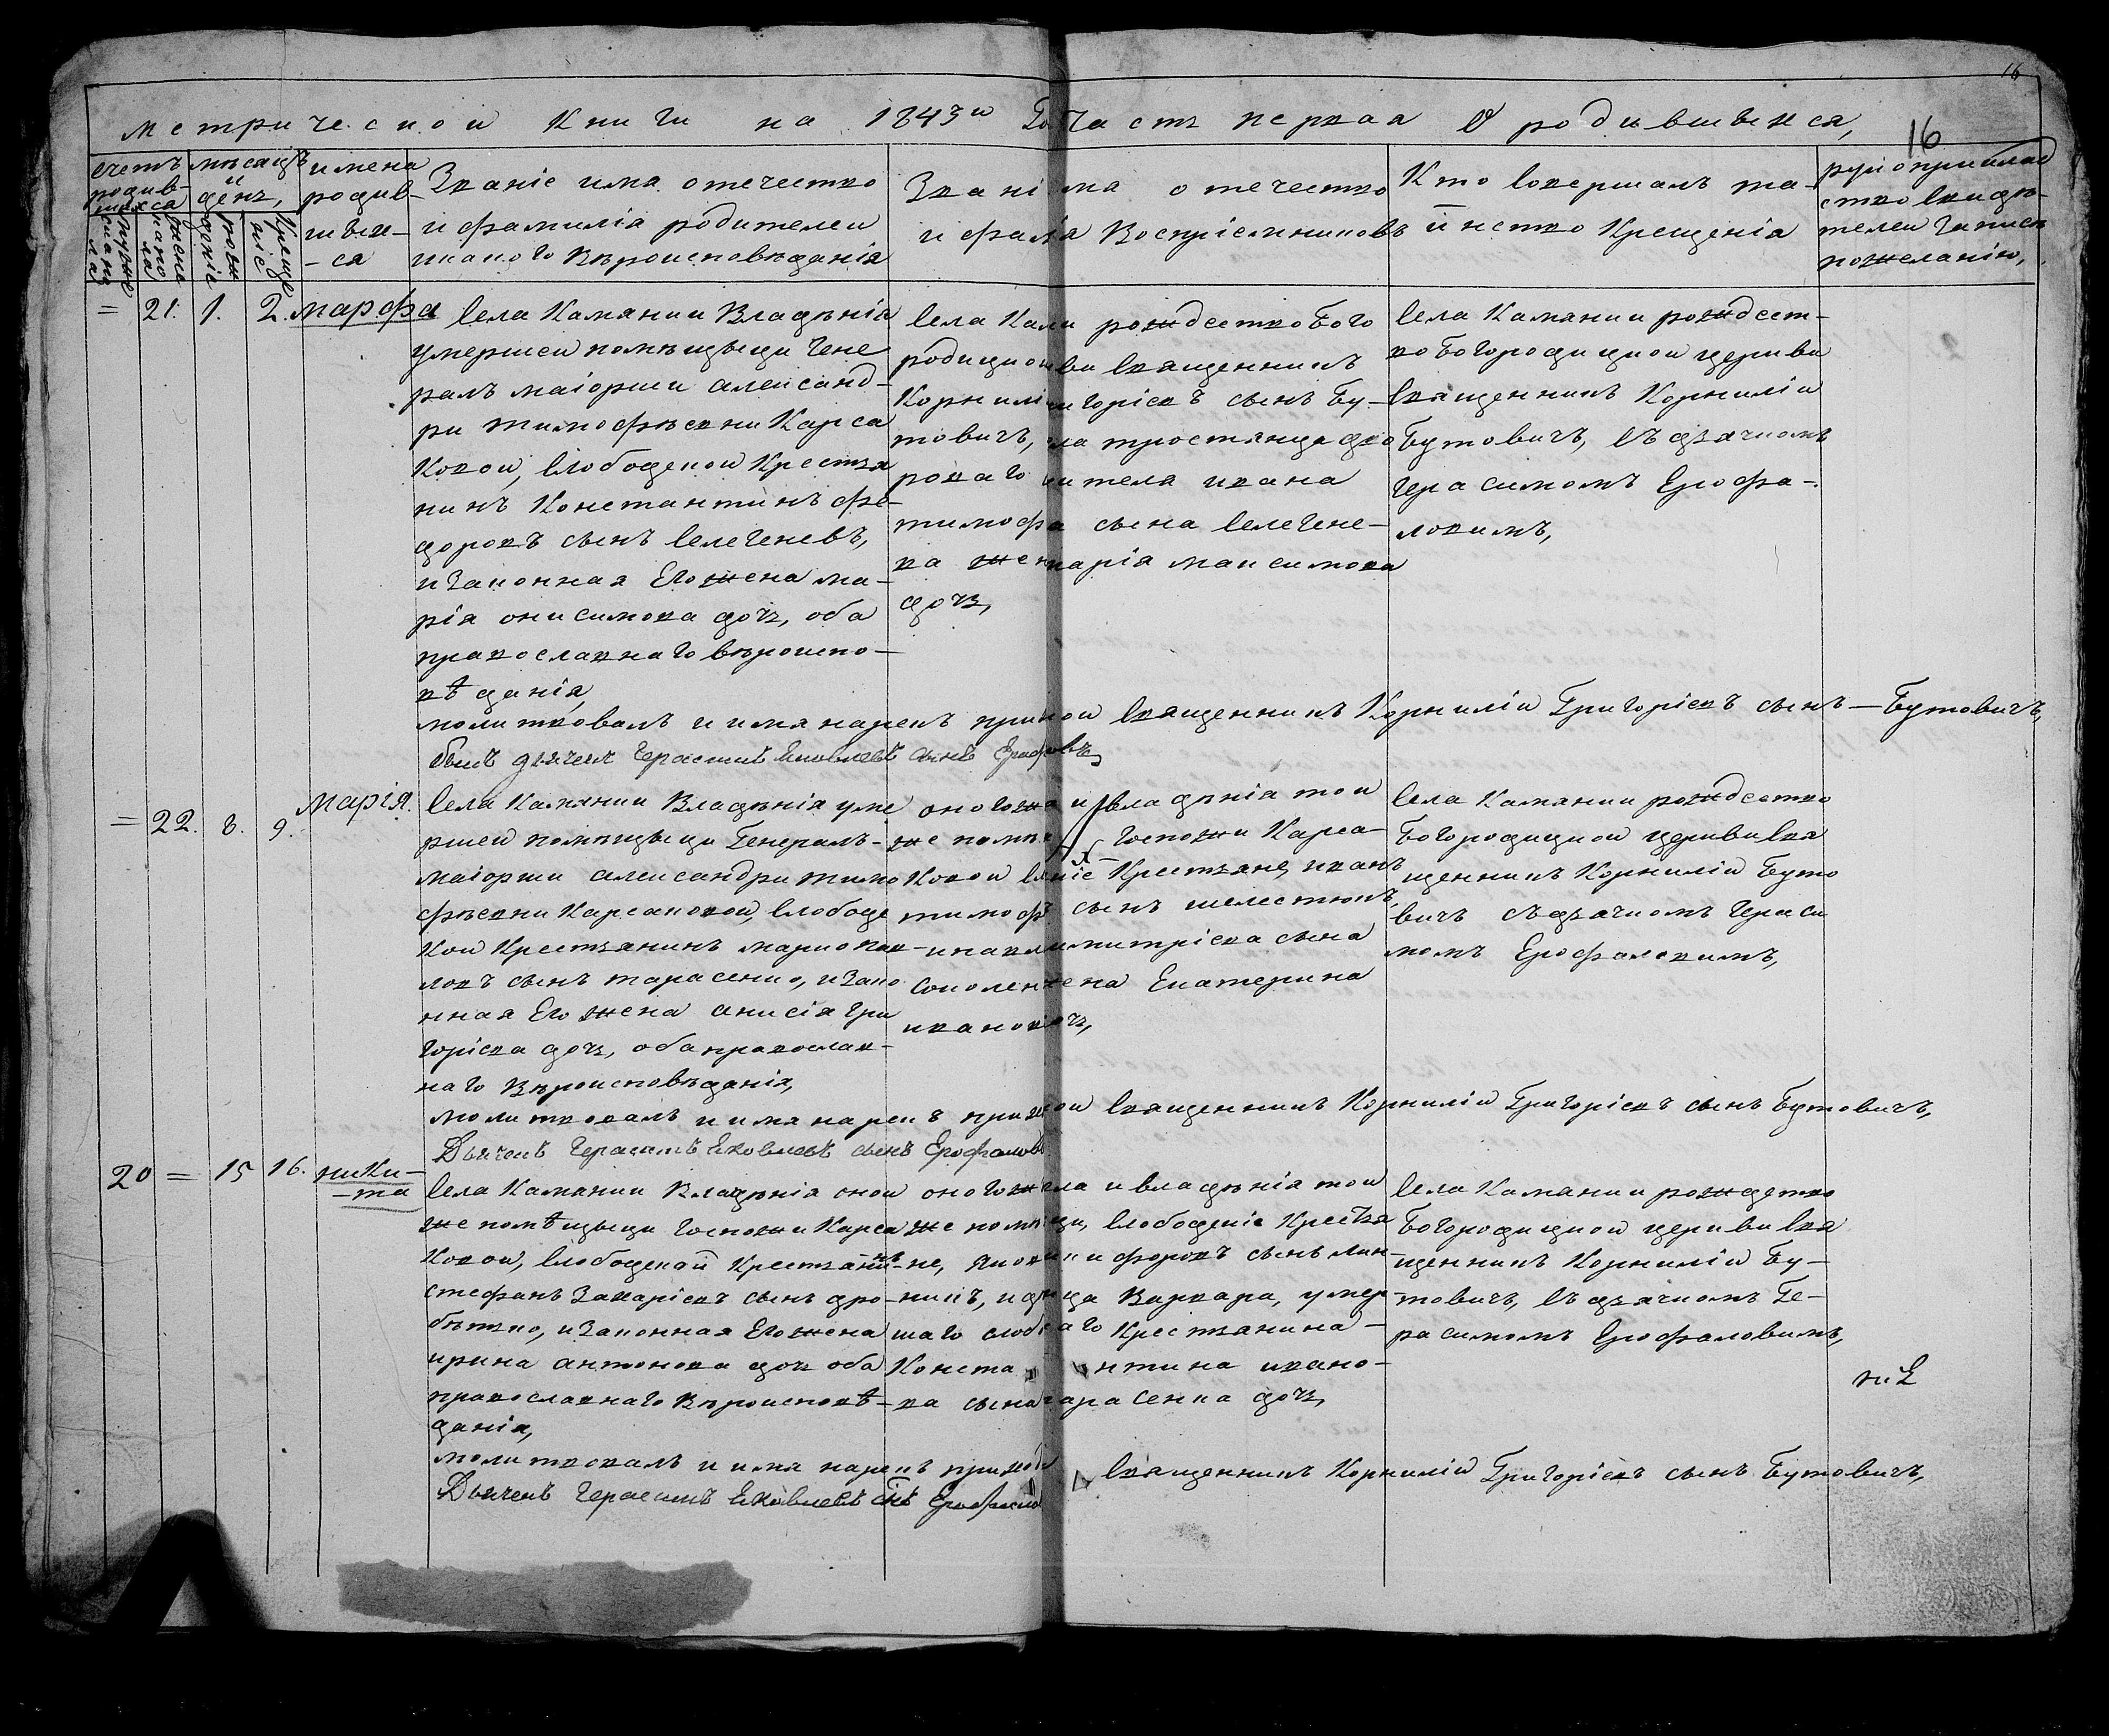 16
метрической Книги на 1843й Го Часть первая О родившихся,
16
счетъ родив-шихся
мѣсяцъ и день,
имена родив-шихъ-ся
Званіе имя отечество
и фамилія родителей
и какого Вѣроисповѣданія
Звані мя отечество
и фамі я Воспріемниковъ
Кто совершалъ та-
инство Крещенія
рукоприклад
ство свидѣ-
телей записи
пожеланію,
мужеска пола
женска пола
рожденіе
Крещеніе
= 21. 1. 2. марфа
села Камянки Владѣнія
умершей помѣщыци гене
ралъ маіорши александ-
ри тимофѣевни Карса
ковой, слободской Крестья
нинъ Константинъ фе-
доровъ сынъ селегеневъ,
и законная Его жена ма-
рія онисимова дочь, оба
православнаго вѣроиспо-
вѣданія,
села Кам рождество Бого
родицкой кви священникъ
Корнилій григоріевъ сынъ Бу-
товичъ, ла тростянца дво
роваго ителя ивана
тимофѣ сына селегене-
ва жен марія максимова
дочь,
села Камянки рождест-
во Богородицкой церкви
священникъ Корнилій
Бутовичъ, съ дьячкомъ
герасимомъ Ерофа-
ловимъ,
молитвовалъ и имя нарекъ при ой священникъ Корнилій Григоріевъ сынъ — Бутовичъ,
былъ дьячекъ Герасимъ Яковлевъ сынъ Ерофаловъ
= 22. 8. 9. Марія.
села Камянки Владѣнія уме
ршей помѣщыци Генералъ-
маіорши александри тимо
фѣевни Карсаковой, слободс
кой Крестьянинъ марко пав-
ловъ сынъ тарасенко, и зако
нная Его жена анисія гри
горіева дочь, оба православ-
наго Вѣроисповѣданія,
оногожъ и владѣнія той
же помѣ Госпожи Карса-
ковой кіе Крестьяне, иванъ
тимофѣ сынъ шелестюкъ,
и павл митріева сына
соколен жена Екатерина
иванова дочь,
села Камянки рождество
Богородицкой церкви свя
щенникъ Корнилій Буто
вичъ съ дьячкомъ гераси
момъ Ерофаловимъ,
молитвовалъ и имя нарекъ приход ой священникъ Корнилій Григоріевъ сынъ Бутовичъ,
Дьячекъ Герасимъ Яковлевъ сынъ Ерофаловъ
20 = 15 16. ники-
-та
села Камянки Владѣнія оной
же помѣщыци госпожи Карса
ковой, слободской Крестьянинъ
стефанъ Захаріевъ сынъ дро-
бѣтко, и законная Его жена
ирина антонова дочь оба
православнаго Вѣроисповѣ-
данія,
оногожъ ела и владѣнія той
же помѣ ци, слободскіе Крестья
не, яков икифоровъ сынъ лин-
никъ, и д ца Варвара, умер-
шаго слоб аго Крестьянина-
Конста нтина ивано-
ва сына тарасенка дочь,
села Камянки рождество
Богородицкой церкви свя
щенникъ Корнилій Бу-
товичъ, съ дьячкомъ Ге-
расимомъ Ерофаловимъ,
молитвовалъ и имя нарекъ приход священникъ Корнилій Григоріевъ сынъ Бутовичъ,
Дьячекъ Герасимъ Яковлевъ снъ Ерофалов